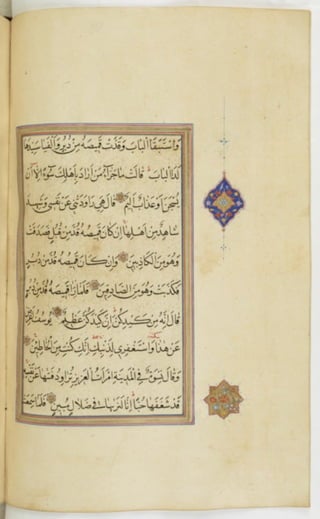 وَاسْتَبَقَا الْبَابَ وَقَدَّتْ قَمِيصَهُ مِنْ دُبُرٍ وَأَلْفَيَا سَيِّدَهَا
لَدَا الْبَابِ قَالَتْ مَا جَزَاءُ مَنْ أَرَادَ بِأَهْلِكَ سُوءًا إِلَّا أَنْ
يُسْجَنَ أَوْ عَذَابٌ أَلِيمٌ قَالَ هِيَ رَاوَدَتْنِي عَنْ نَفْسِي وَشَهِدَ
شَاهِدٌ مِنْ أَهْلِهَا إِنْ كَانَ قَمِيصُهُ قُدَّ مِنْ قُبُلٍ فَصَدَقَتْ
وَهُوَ مِنَ الْكَاذِبِينَ وَإِنْ كَانَ قَمِيصُهُ قُدَّ مِنْ دُبُرٍ
فَكَذَبَتْ وَهُوَ مِنَ الصَّادِقِينَ فَلَمَّا رَأَى قَمِيصَهُ قُدَّ مِنْ دُبُرٍ
قَالَ إِنَّهُ مِنْ كَيْدِكُنَّ إِنَّ كَيْدَكُنَّ عَظِيمٌ يُوسُفُ أَعْرِضْ
عَنْ هَذَا وَاسْتَغْفِرِي لِذَنْبِكِ إِنَّكِ كُنْتِ مِنَ الْخَاطِئِينَ
وَقَالَ نِسْوَةٌ فِي الْمَدِينَةِ امْرَأَتُ الْعَزِيزِ تُرَاوِدُ فَتَاهَا عَنْ نَفْسِهِ
قَدْ شَغَفَهَا حُبًّا إِنَّا لَنَرَاهَا فِي ضَلَالٍ مُبِينٍ فَلَمَّا سَمِعَتْ